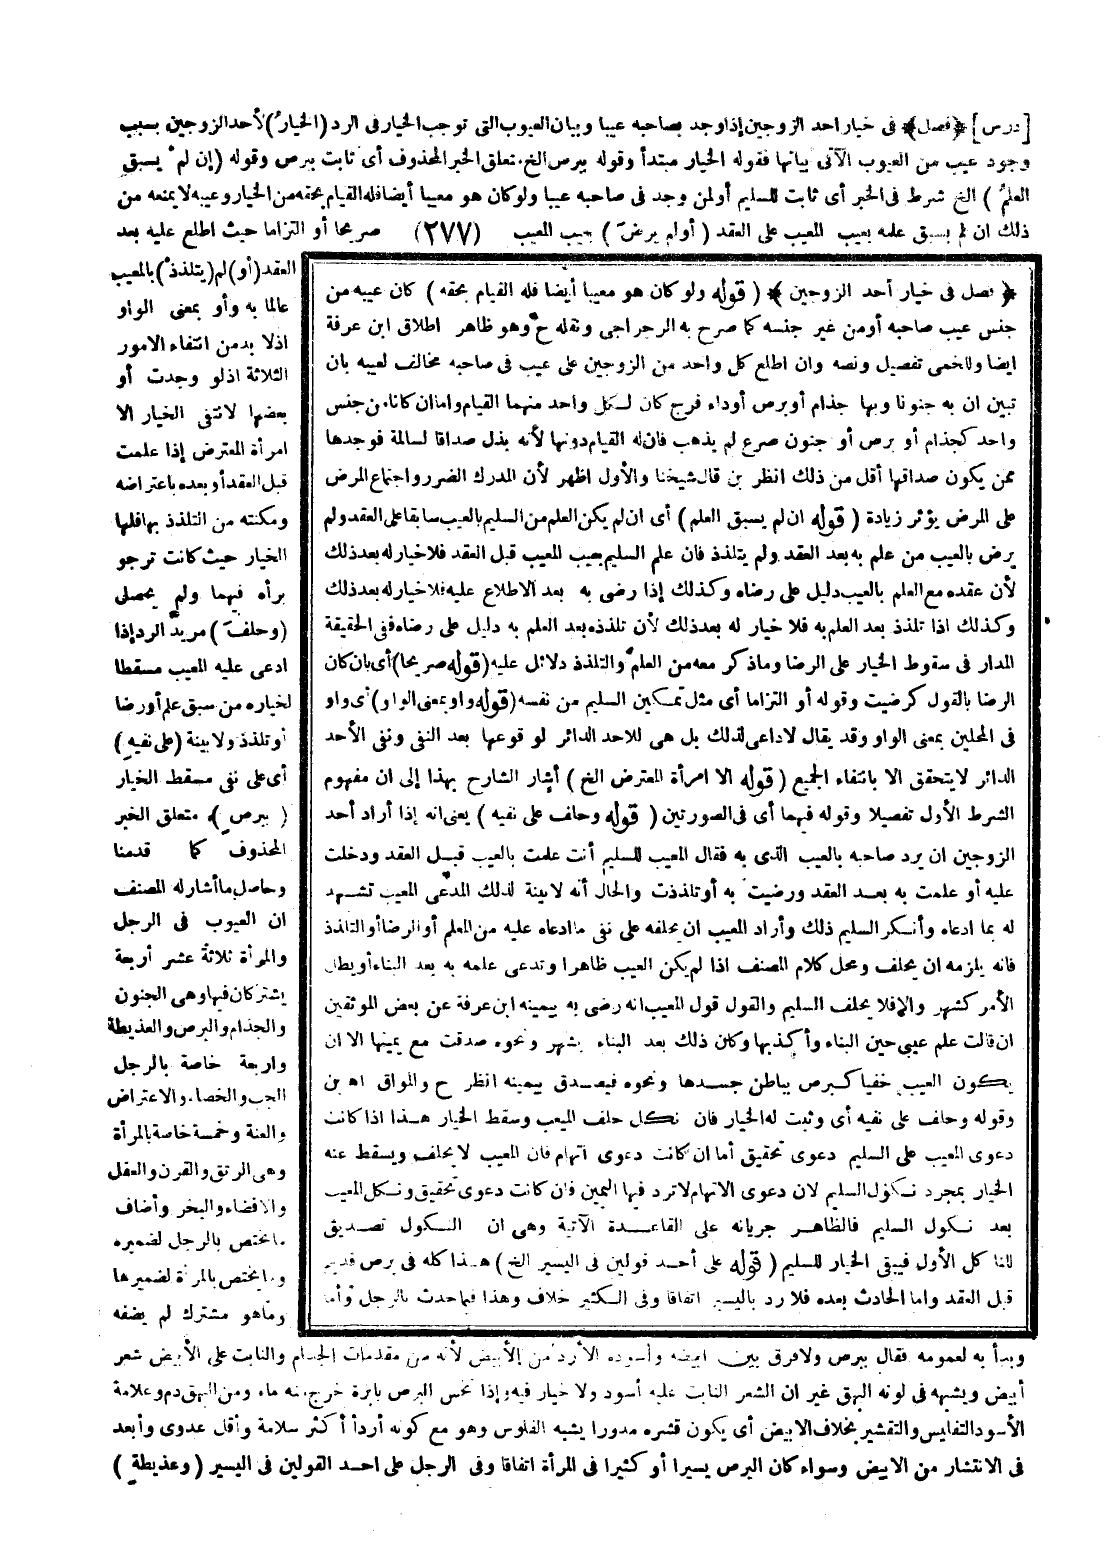 [درس] ﴿فصل﴾ فى خيار احد الزوجين إذا وجد بصاحبه عيبا وبيان العيوب التى توجب الخيار فى الرد (الخيارُ) لأحد الزوجين بسبب
وجود عيب من العيوب الآتى بيانها فقوله الخيار مبتدأ وقوله ببرص الخ متعلق الخبر المحذوف أى ثابت ببرص وقوله (إن لم يسبق
العلمُ) الخ شرط فى الخبر أى ثابت للسليم أو لمن وجد فى صاحبه عيبا ولو كان هو معيبا أيضا فله القيام بحقه من الخيار وعيبه لا يمنعه من
ذلك ان لم يسبق علمه بعيب المعيب على العقد (أو لم يرضَ) بعيب المعيب (٢٧٧) صريحا أو التزاما حيث اطلع عليه بعد
العقد (أو) لم (يتلذذ) بالمعيب
عالما به وأو بمعنى الواو
اذ لا بد من انتفاء الامور
الثلاثة اذ لو وجدت أو
بعضها لانتفى الخيار الا
امرأة المعترض إذا علمت
قبل العقد أو بعده باعتراضه
ومكنته من التلذذ بها فلها
الخيار حيث كانت ترجو
برأه فيهما ولم يحصل
(وحلف) مريد الرد إذا
ادعى عليه المعيب مسقطا
لخياره من سبق علم أو رضا
أو تلذذ ولا بينة (على نفيه)
أى على نفى مسقط الخيار
(ببرص) متعلق الخبر
المحذوف كما قدمنا
وحاصل ما أشار له المصنف
ان العيوب فى الرجل
والمرأة ثلاثة عشر أربعة
يشتركان فيها وهى الجنون
والجذام والبرص والعذيطة
واربعة خاصة بالرجل
الجب والخصاء والاعتراض
والعنة وخمسة خاصة بالمرأة
وهى الرتق والقرن والعفل
والافضاء والبخر وأضاف
ما يختص بالرجل لضميره
وما يختص بالمرأة لضميرها
وما هو مشترك لم يضفه
﴿فصل فى خيار أحد الزوجين﴾ (قوله ولو كان هو معيبا أيضا فله القيام بحقه) كان عيبه من
جنس عيب صاحبه أو من غير جنسه كما صرح به الرجراجى ونقله ح وهو ظاهر اطلاق ابن عرفة
ايضا وللخمى تفصيل ونصه وان اطلع كل واحد من الزوجين على عيب فى صاحبه مخالف لعيبه بان
تبين ان به جنونا وبها جذام أو برص أو داء فرج كان لكل واحد منهما القيام واما ان كانا من جنس
واحد كجذام أو برص أو جنون صرع لم يذهب فان له القيام دونها لأنه بذل صداقا لسالمة فوجدها
ممن يكون صداقها أقل من ذلك انظر بن قال شيخنا والأول اظهر لأن المدرك الضرر واجتماع المرض
على المرض يؤثر زيادة (قوله ان لم يسبق العلم) أى ان لم يكن العلم من السليم بالعيب سابقا على العقد ولم
يرض بالعيب من علم به بعد العقد ولم يتلذذ فان علم السليم بعيب المعيب قبل العقد فلا خيار له بعد ذلك
لأن عقده مع العلم بالعيب دليل على رضاه وكذلك إذا رضى به بعد الاطلاع عليه فلا خيار له بعد ذلك
وكذلك اذا تلذذ بعد العلم به فلا خيار له بعد ذلك لأن تلذذه بعد العلم به دليل على رضاه ففى الحقيقة
المدار فى سقوط الخيار على الرضا وما ذكر معه من العلم والتلذذ دلائل عليه (قوله صريحا) أى بان كان
الرضا بالقول كرضيت وقوله أو التزاما أى مثل تمكين السليم من نفسه (قوله وأو بمعنى الواو) أى وأو
فى المحلين بمعنى الواو وقد يقال لا داعى لذلك بل هى للاحد الدائر لوقوعها بعد النفى ونفى الأحد
الدائر لا يتحقق الا بانتفاء الجميع (قوله الا امرأة المعترض الخ) أشار الشارح بهذا إلى ان مفهوم
الشرط الأول تفصيلا وقوله فيهما أى فى الصورتين (قوله وحلف على نفيه) يعنى انه إذا أراد أحد
الزوجين ان يرد صاحبه بالعيب الذى به فقال المعيب للسليم أنت علمت بالعيب قبل العقد ودخلت
عليه أو علمت به بعد العقد ورضيت به أو تلذذت والحال أنه لا بينة لذلك المدعى المعيب تشهد
له بما ادعاه وأنكر السليم ذلك وأراد المعيب ان يحلفه على نفى ما ادعاه عليه من العلم أو الرضا أو التلذذ
فانه يلزمه ان يحلف ومحل كلام المصنف اذا لم يكن العيب ظاهرا وتدعى علمه به بعد البناء أو يطال
الأمر كشهر والا فلا يحلف السليم والقول قول المعيب انه رضى به بيمينه ابن عرفة عن بعض الموثقين
ان قالت علم عيبى حين البناء وأكذبها وكان ذلك بعد البناء بشهر ونحوه صدقت مع يمينها الا ان
يكون العيب خفيا كبرص بباطن جسدها ونحوه فيصدق بيمينه انظر ح والمواق اه بن
وقوله وحلف على نفيه أى وثبت له الخيار فان نكل حلف المعيب وسقط الخيار هذا اذا كانت
دعوى المعيب على السليم دعوى تحقيق أما ان كانت دعوى آتهام فان المعيب لا يحلف ويسقط عنه
الخيار بمجرد نكول السليم لان دعوى الاتهام لا ترد فيها اليمين فان كانت دعوى تحقيق ونكل المعيب
بعد نكول السليم فالظاهر جريانه على القاعدة الآتية وهى ان النكول تصديق
للناكل الأول فيبقى الخيار للسليم (قوله على أحد قولين فى اليسير الخ) هذا كله فى برص قديم
قبل العقد واما الحادث بعده فلا رد باليسير اتفاقا وفى الكثير خلاف وهذا فيما حدث بالرجل وأما
وبدأ به لعمومه فقال ببرص ولا فرق بين ابيضه وأسوده الأردأ من الأبيض لأنه من مقدمات الجذام والنابت على الأبيض شعر
أبيض ويشبهه فى لونه البهق غير ان الشعر النابت عليه أسود ولا خيار فيه وإذا نخس البرص بابرة خرج منه ماء ومن البهق دم وعلامة
الأسود التفليس والتقشير بخلاف الابيض أى يكون قشره مدورا يشبه الفلوس وهو مع كونه أردأ أكثر سلامة وأقل عدوى وأبعد
فى الانتشار من الابيض وسواء كان البرص يسيرا أو كثيرا فى المرأة اتفاقا وفى الرجل على احد القولين فى اليسير (وعذيطةٍ)